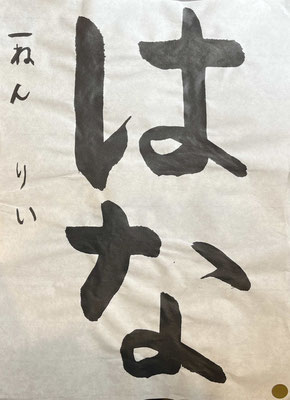 はな
一ねん りい